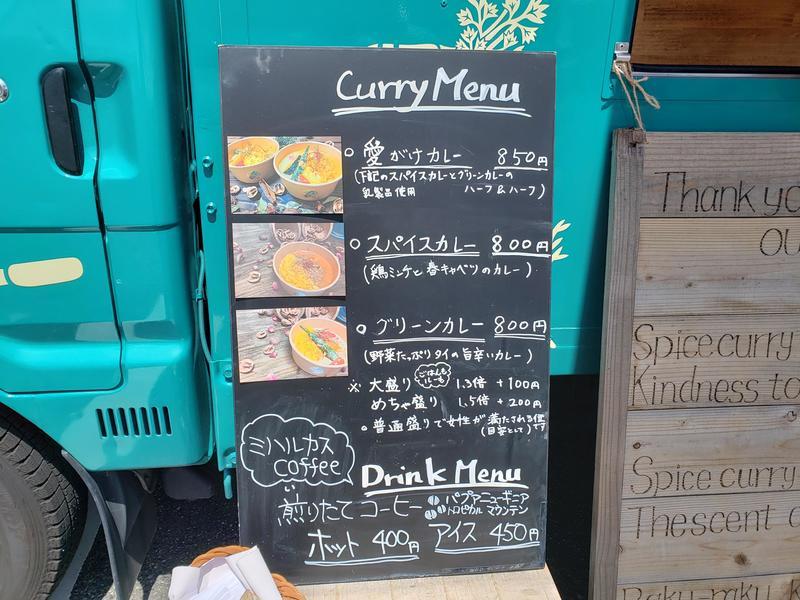 Curry Menu
愛がけカレー 850円
(下記のスパイスカレーとグリーンカレーの
乳製品使用 ハーフ&ハーフ)
スパイスカレー 800円
(鶏ミンチと春キャベツのカレー)
グリーンカレー 800円
(野菜たっぷりタイの旨辛いカレー)
ごはんも
ルーも
※ 大盛り 1.3倍 +100円
めちゃ盛り 1.5倍 +200円
普通盛りで女性が満たされる位
(目安として)です
ミハルカス
coffee
Drink Menu
煎りたてコーヒー パプアニューギニア
トロピカルマウンテン
ホット 400円 アイス 450円
Thank yo
ou
Spice curry
Kindness to
Spice curry
The scent